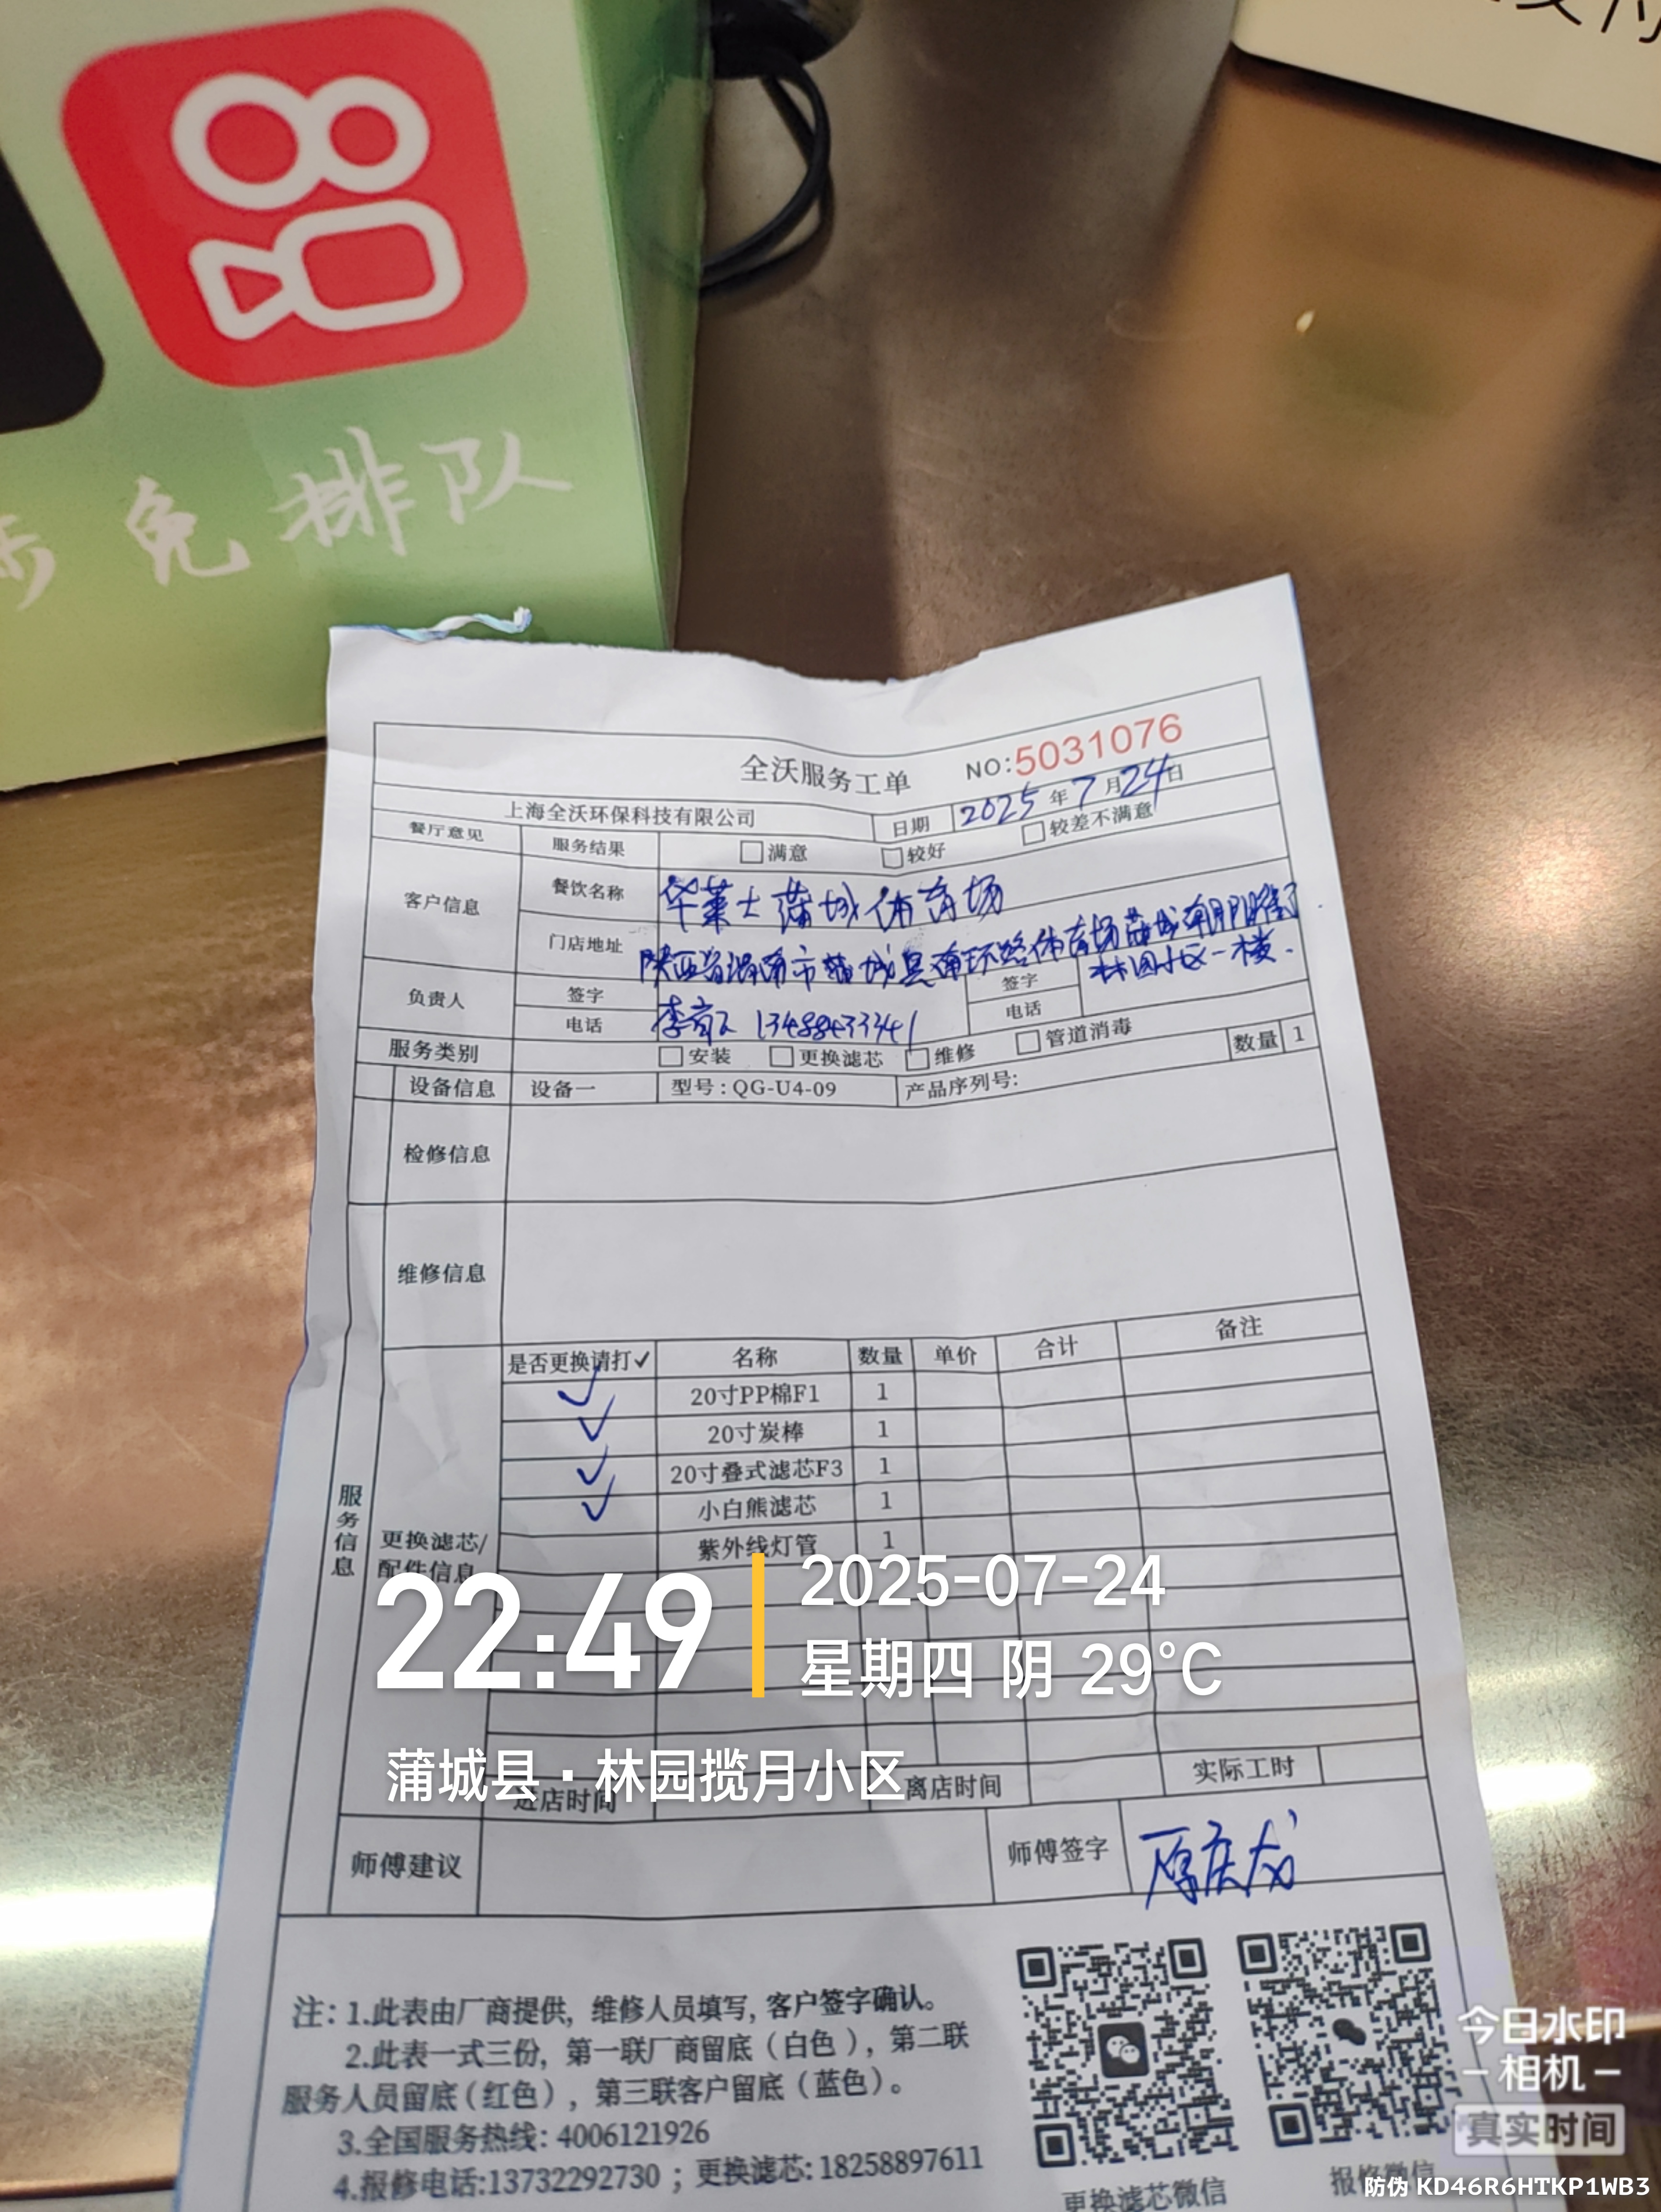 支付
免排队
全沃服务工单 NO:5031076
上海全沃环保科技有限公司 日期 2025年7月24日
餐厅意见 服务结果 □满意 □较好 □较差不满意
客户信息 餐饮名称 华莱士蒲城体育场
门店地址 陕西省渭南市蒲城县南环路体育场蒲城朝阳路
林园小区一楼.
负责人 签字 签字
电话 李 13488433341 电话
服务类别 □安装 □更换滤芯 □维修 □管道消毒
设备信息 设备一 型号:QG-U4-09 产品序列号: 数量 1
检修信息
维修信息
服务信息
更换滤芯/配件信息
是否更换请打✓ 名称 数量 单价 合计 备注
✓ 20寸PP棉F1 1
✓ 20寸炭棒 1
✓ 20寸叠式滤芯F3 1
✓ 小白熊滤芯 1
紫外线灯管 1
22:49
2025-07-24
星期四 阴 29°C
蒲城县·林园揽月小区
进店时间 离店时间 实际工时
师傅建议 师傅签字 原庆龙
注: 1.此表由厂商提供, 维修人员填写, 客户签字确认。
2.此表一式三份, 第一联厂商留底(白色), 第二联
服务人员留底(红色), 第三联客户留底(蓝色)。
3.全国服务热线: 4006121926
4.报修电话:13732292730 ; 更换滤芯: 18258897611
更换滤芯微信 报修微信
今日水印
-相机-
真实时间
防伪 KD46R6HTKP1WB3